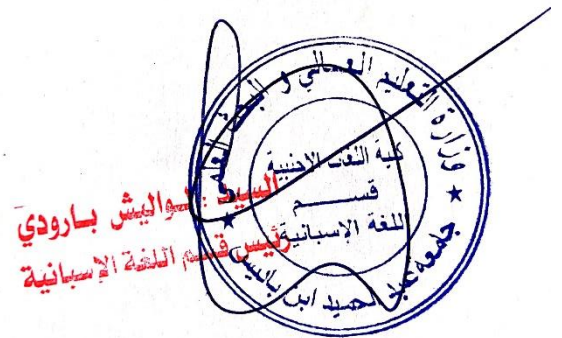 وزارة التعليم العالي و البحث العلمي
كلية اللغات الاجنبية
قسم
اللغة الإسبانية
جامعة عبد الحميد ابن باديس
السيد : لواليش بارودي
رئيس قسم اللغة الإسبانية